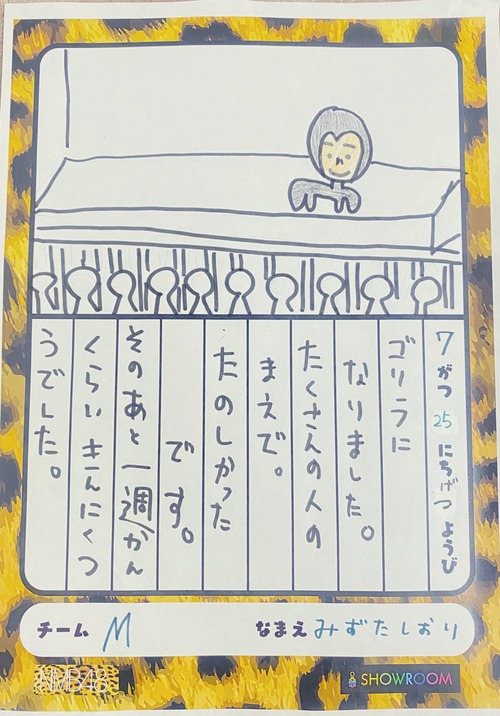 7がつ25にちげつようび
ゴリラに
なりました。
たくさんの人の
まえで。
たのしかった
です。
そのあと一週かん
くらいきんにくつ
うでした。
チーム M
なまえ みずたしおり
NMB48
SHOWROOM